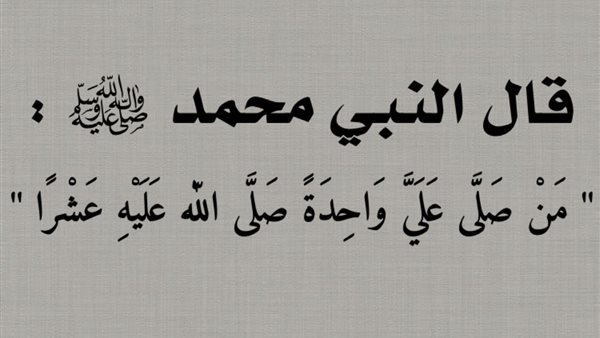 قال النبي محمد ﷺ :
" مَنْ صَلَّى عَلَيَّ وَاحِدَةً صَلَّى الله عَلَيْهِ عَشْرًا "